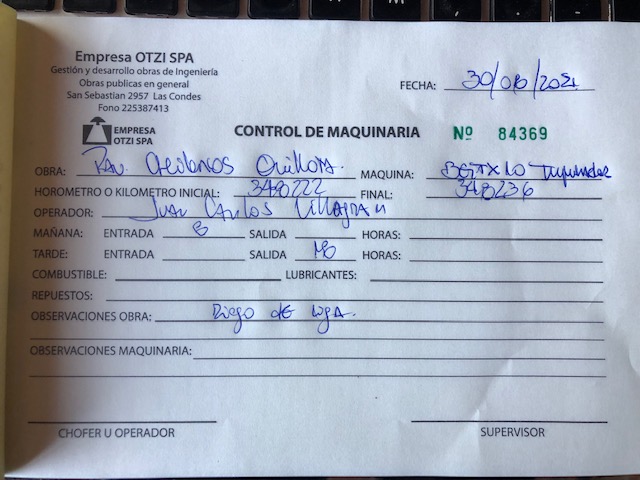 Empresa OTZI SPA
Gestión y desarrollo obras de Ingeniería
Obras publicas en general
San Sebastian 2957 Las Condes
Fono 225387413
FECHA: 30/06/2021
EMPRESA
OTZI SPA
CONTROL DE MAQUINARIA
Nº 84369
OBRA: Quillota. MAQUINA:
HOROMETRO O KILOMETRO INICIAL: FINAL: 348236
OPERADOR: Juan Carlos Villagran
MAÑANA: ENTRADA 8 SALIDA 18 HORAS:
TARDE: ENTRADA SALIDA HORAS:
COMBUSTIBLE: LUBRICANTES:
REPUESTOS:
OBSERVACIONES OBRA: Riego de
OBSERVACIONES MAQUINARIA:
CHOFER U OPERADOR SUPERVISOR